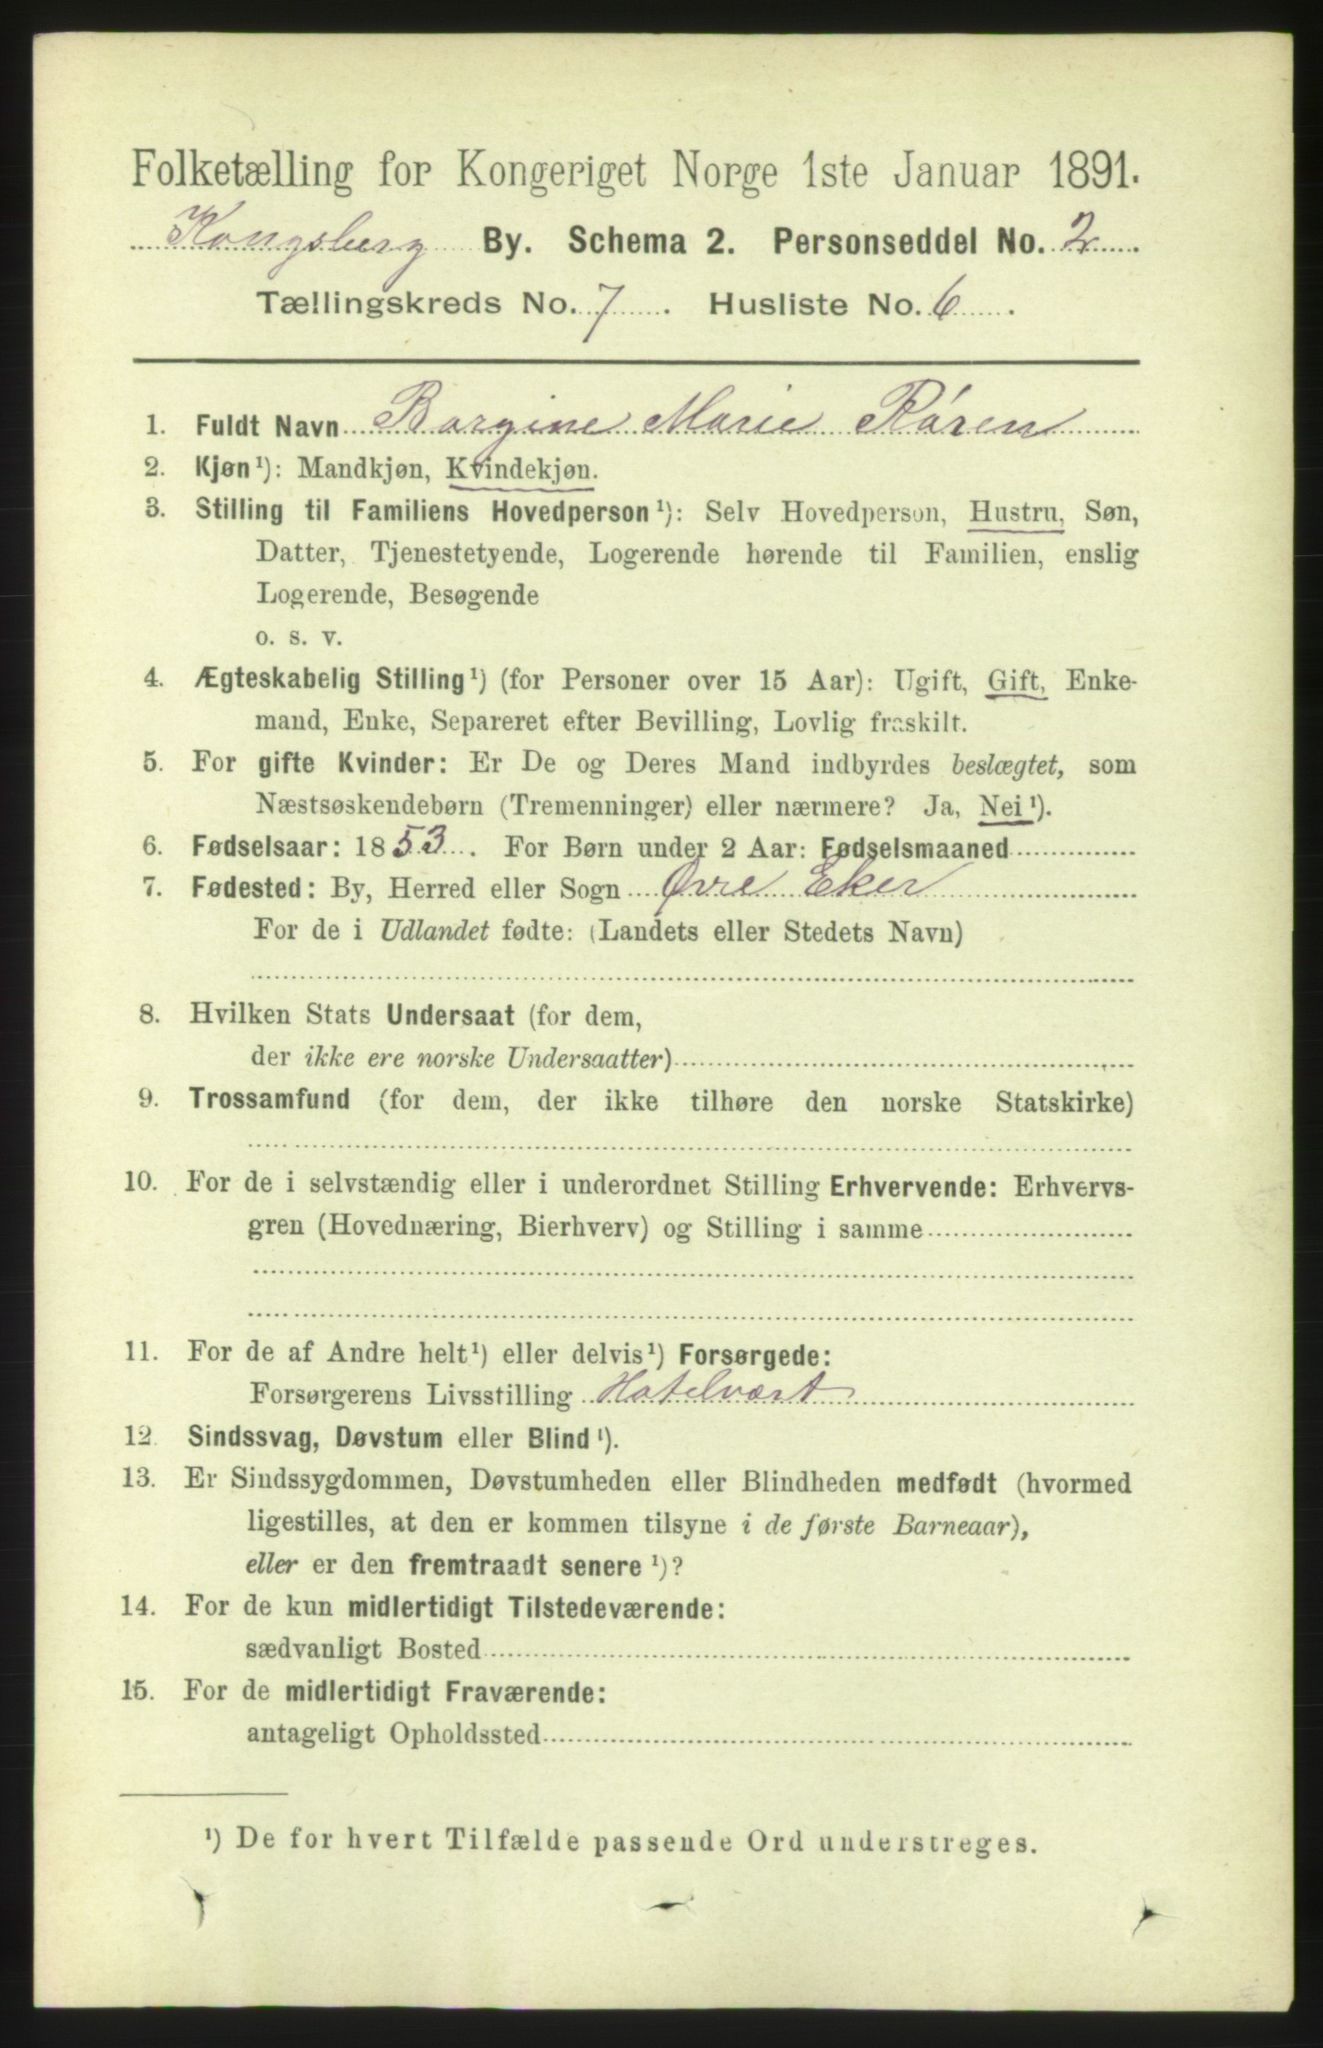 Folketælling for Kongeriget Norge 1ste Januar 1891.
Kongsberg By. Schema 2. Personseddel No. 2.
Tællingskreds No. 7. Husliste No. 6.
1. Fuldt Navn Borgine Marie Róren
2. Kjøn¹): Mandkjøn, Kvindekjøn.
3. Stilling til Familiens Hovedperson¹): Selv Hovedperson, Hustru, Søn,
Datter, Tjenestetyende, Logerende hørende til Familien, enslig
Logerende, Besøgende
o. s. v.
4. Ægteskabelig Stilling¹) (for Personer over 15 Aar): Ugift, Gift, Enke-
mand, Enke, Separeret efter Bevilling, Lovlig fraskilt.
5. For gifte Kvinder: Er De og Deres Mand indbyrdes beslægtet, som
Næstsøskendebørn (Tremenninger) eller nærmere? Ja, Nei¹).
6. Fødselsaar: 1853. For Børn under 2 Aar: Fødselsmaaned
7. Fødested: By, Herred eller Sogn Øvre Eker
For de i Udlandet fødte: (Landets eller Stedets Navn)
8. Hvilken Stats Undersaat (for dem,
der ikke ere norske Undersaatter)
9. Trossamfund (for dem, der ikke tilhøre den norske Statskirke)
10. For de i selvstændig eller i underordnet Stilling Erhvervende: Erhvervs-
gren (Hovednæring, Bierhverv) og Stilling i samme
11. For de af Andre helt¹) eller delvis¹) Forsørgede:
Forsørgerens Livsstilling Hotelvært
12. Sindssvag, Døvstum eller Blind¹).
13. Er Sindssygdommen, Døvstumheden eller Blindheden medfødt (hvormed
ligestilles, at den er kommen tilsyne i de første Barneaar),
eller er den fremtraadt senere¹)?
14. For de kun midlertidigt Tilstedeværende:
sædvanligt Bosted
15. For de midlertidigt Fraværende:
antageligt Opholdssted
¹) De for hvert Tilfælde passende Ord understreges.